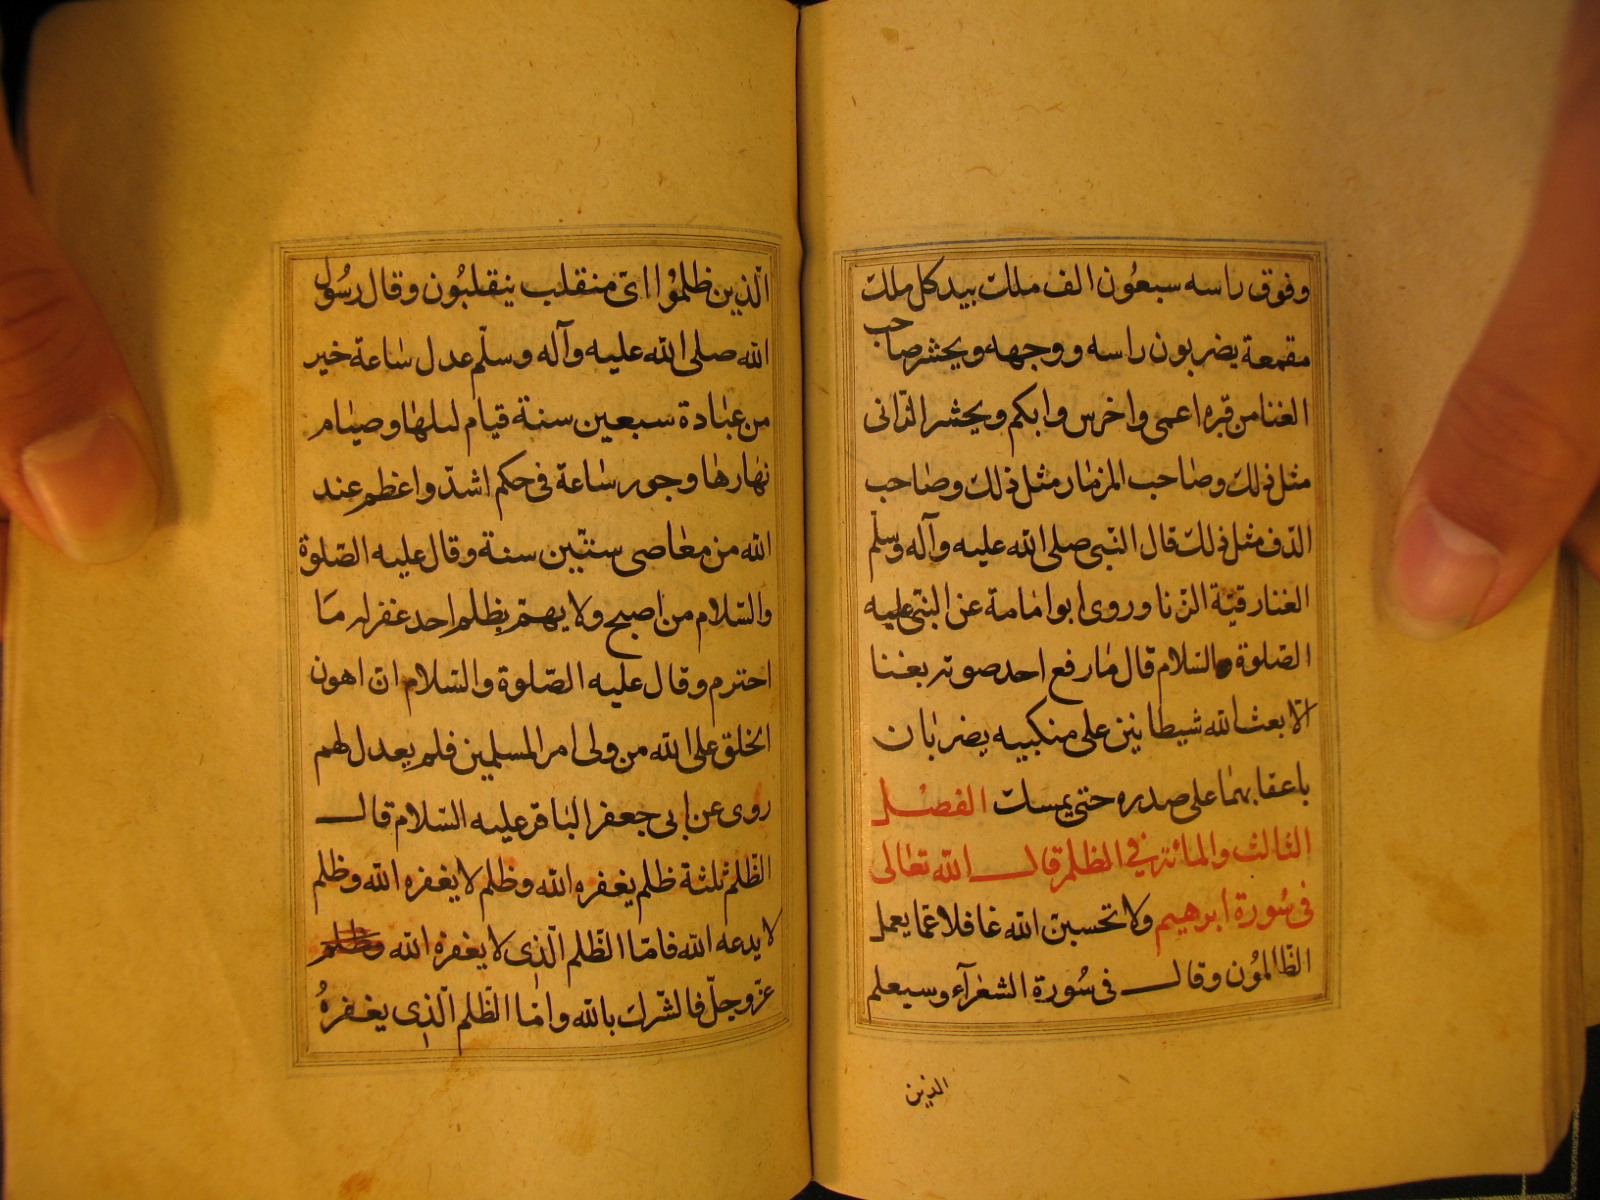 وفوق راسه سبعون الف ملك بيد كل ملك
مقمعة يضربون راسه ووجهه ويحشر صاحب
الغنا من قبره اعمى واخرس وابكم ويحشر الزانى
مثل ذلك وصاحب المزمار مثل ذلك وصاحب
الدّف مثل ذلك قال النّبى صلى الله عليه وآله وسلّم
الغنا رقية الزّنا وروى ابوامامة عن النبى عليه
الصّلوة والسّلام قال مارفع احد صوته بغنا
الّا بعث الله شيطانين على منكبيه يضربان
باعقابهما على صدره حتى يمسك الفصل
الثالث والمائة فى الظلم قال الله تعالى
فى سُورة ابرهيم ولا تحسبنّ الله غافلا عمّا يعمل
الظّالمُون وقال فى سُورة الشعرآء وسيعلم
الذين
الّذين ظلمُوا اىّ منقلب ينقلبُون وقال رسُول
الله صلى الله عليه وآله وسلّم عدل ساعة خير
من عبادة سبعين سنة قيام ليلها وصيام
نهارها وجور ساعة فى حكم اشدّ واعظم عند
الله من معاصى ستّين سنة وقال عليه الصّلوة
والسّلام من اصبح ولا يهمّ بظلم احد غفر له مَا
اجترم وقال عليه الصّلوة والسّلام انّ اهون
الخلق على الله من ولى امر المسلمين فلم يعدل لهم
روى عن ابى جعفر الباقر عليه السّلام قال
الظّلم ثلثة ظلم يغفره الله وظلم لا يغفره الله وظلم
لا يدعه الله فامّا الظّلم الّذى لا يغفره الله وظلم
عزّوجلّ فالشّرك بالله وامّا الظّلم الّذى يغفرهُ